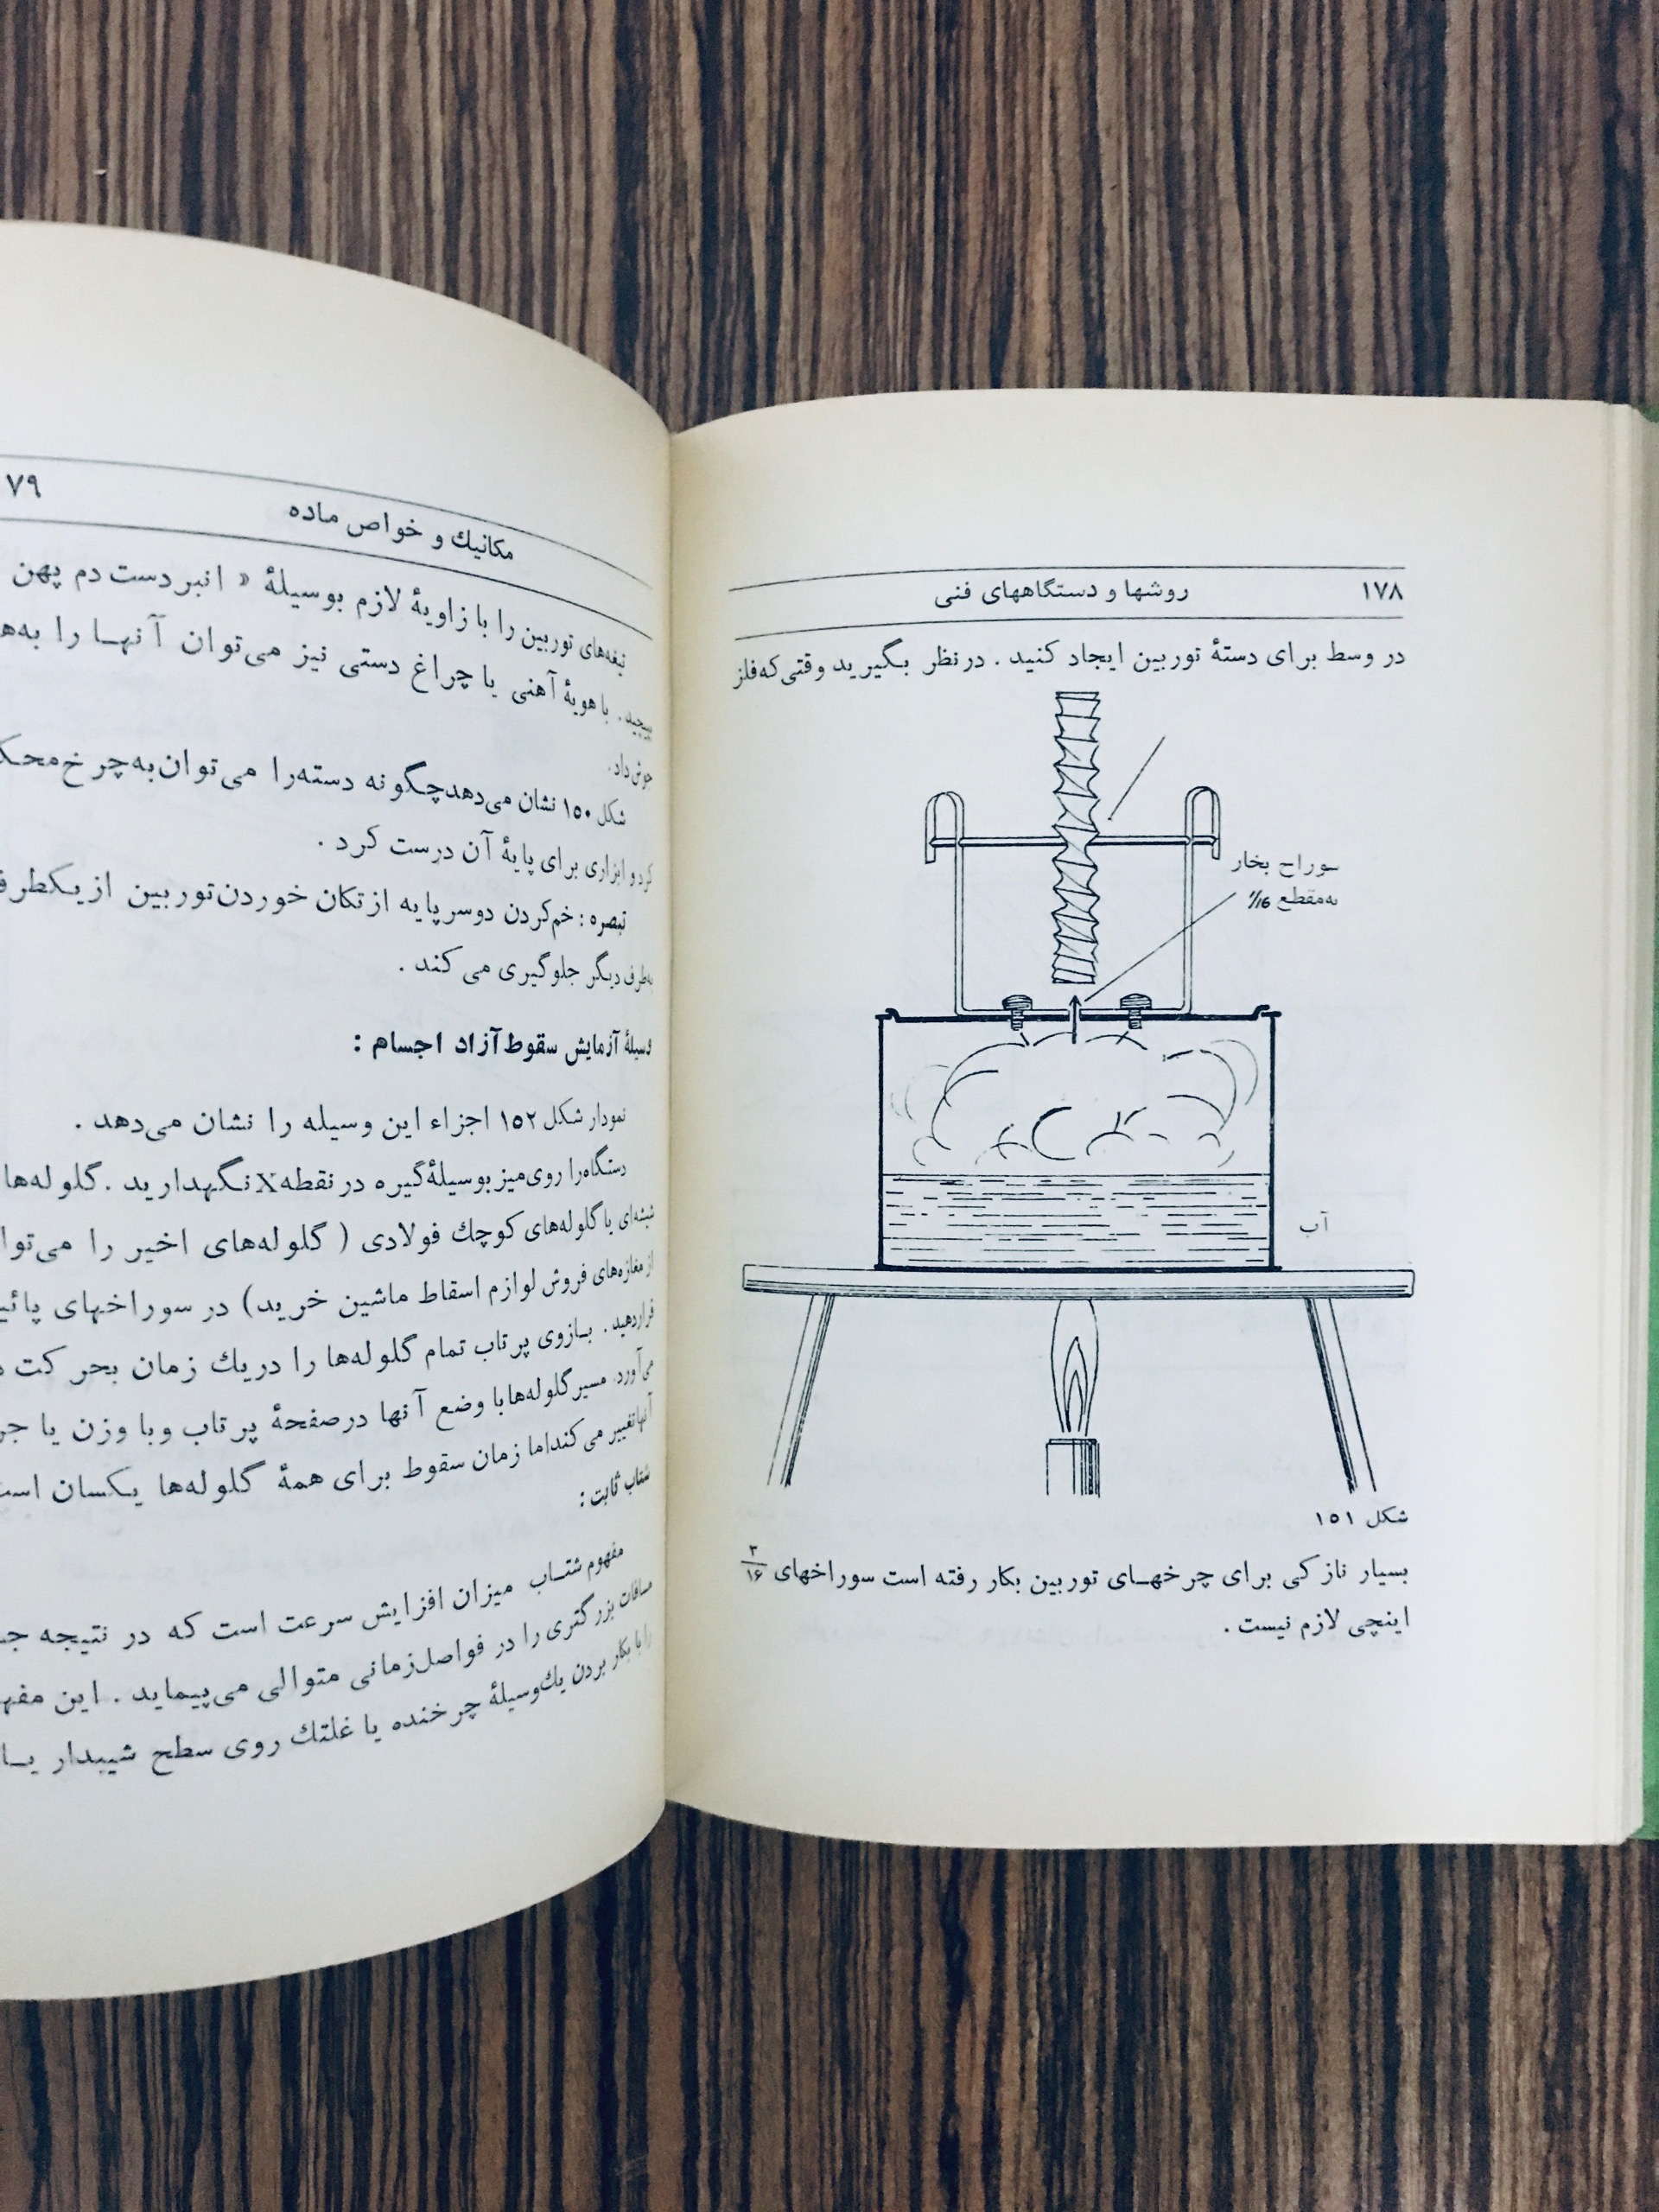 ۱۷۸
روشها و دستگاههای فنی
در وسط برای دستهٔ توربین ایجاد کنید . در نظر بگیرید وقتی که فلز
سوراخ بخار
به مقطع 1/16
آب
شکل ۱۵۱
بسیار نازکی برای چرخهای توربین بکار رفته است سوراخهای ۳/۱۶
اینچی لازم نیست .
مکانیك و خواص ماده
۷۹
تیغه‌های توربین را با زاویهٔ لازم بوسیلهٔ « انبردست دم پهن
بپیچید. با هویهٔ آهنی یا چراغ دستی نیز می‌توان آنها را به
جوش داد.
شکل ۱۵۰ نشان می‌دهد چگونه دسته را می‌توان به چرخ
کرد و ابزاری برای پایهٔ آن درست کرد .
تبصره : خم کردن دو سر پایه از تکان خوردن توربین از
به طرف دیگر جلوگیری می کند .
وسیلهٔ آزمایش سقوط آزاد اجسام :
نمودار شکل ۱۵۲ اجزاء این وسیله را نشان می‌دهد .
دستگاه را روی میز بوسیلهٔ گیره در نقطه X نگهدارید . گلوله‌ها
شیشه‌ای با گلوله‌های کوچك فولادی ( گلوله‌های اخیر را
از مغازه‌های فروش لوازم اسقاط ماشین خرید) در سوراخهای
قرار دهید . بازوی پرتاب تمام گلوله‌ها را در یك زمان بحرکت
می‌آورد. مسیر گلوله‌ها با وضع آنها در صفحهٔ پرتاب و با وزن یا
آنها تغییر می‌کند اما زمان سقوط برای همهٔ گلوله‌ها یکسان
شتاب ثابت :
مفهوم شتاب میزان افزایش سرعت است که در نتیجه
مسافات بزرگتری را در فواصل زمانی متوالی می‌پیماید . این
را با بکار بردن یك وسیلهٔ چرخنده یا غلتك روی سطح شیبدار